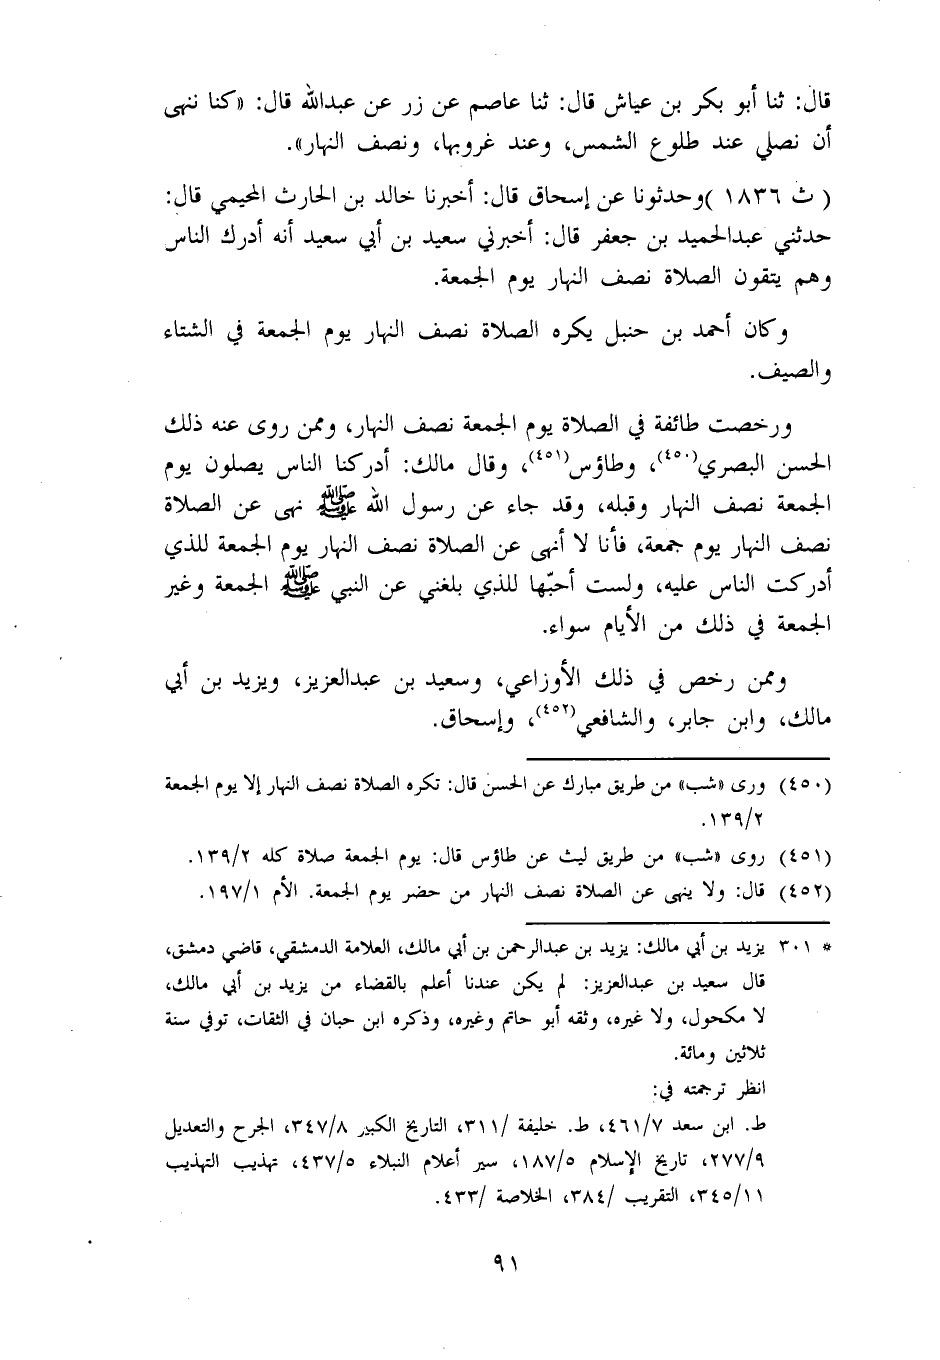 قال: ثنا أبو بكر بن عياش قال: ثنا عاصم عن زر عن عبدالله قال: «كنا ننهى
أن نصلي عند طلوع الشمس، وعند غروبها، ونصف النهار».
( ث ١٨٣٦ )وحدثونا عن إسحاق قال: أخبرنا خالد بن الحارث المحيمي قال:
حدثني عبدالحميد بن جعفر قال: أخبرني سعيد بن أبي سعيد أنه أدرك الناس
وهم يتقون الصلاة نصف النهار يوم الجمعة.
وكان أحمد بن حنبل يكره الصلاة نصف النهار يوم الجمعة في الشتاء
والصيف.
ورخصت طائفة في الصلاة يوم الجمعة نصف النهار، وممن روى عنه ذلك
الحسن البصري(٤٥٠)، وطاؤس(٤٥١)، وقال مالك: أدركنا الناس يصلون يوم
الجمعة نصف النهار وقبله، وقد جاء عن رسول الله ﷺ نهى عن الصلاة
نصف النهار يوم جمعة، فأنا لا أنهى عن الصلاة نصف النهار يوم الجمعة للذي
أدركت الناس عليه، ولست أحبّها للذي بلغني عن النبي ﷺ الجمعة وغير
الجمعة في ذلك من الأيام سواء.
وممن رخص في ذلك الأوزاعي، وسعيد بن عبدالعزيز، ويزيد بن أبي
مالك، وابن جابر، والشافعي(٤٥٢)، وإسحاق.
(٤٥٠) ورى «شب» من طريق مبارك عن الحسن قال: تكره الصلاة نصف النهار إلا يوم الجمعة
١٣٩/٢.
(٤٥١) روى «شب» من طريق ليث عن طاؤس قال: يوم الجمعة صلاة كله ١٣٩/٢.
(٤٥٢) قال: ولا ينهى عن الصلاة نصف النهار من حضر يوم الجمعة. الأم ١٩٧/١.
* ٣٠١ يزيد بن أبي مالك: يزيد بن عبدالرحمن بن أبي مالك، العلامة الدمشقي، قاضي دمشق،
قال سعيد بن عبدالعزيز: لم يكن عندنا أعلم بالقضاء من يزيد بن أبي مالك،
لا مكحول، ولا غيره، وثقه أبو حاتم وغيره، وذكره ابن حبان في الثقات، توفي سنة
ثلاثين ومائة.
انظر ترجمته في:
ط. ابن سعد ٤٦١/٧، ط. خليفة /٣١١، التاريخ الكبير ٣٤٧/٨، الجرح والتعديل
٢٧٧/٩، تاريخ الإسلام ١٨٧/٥، سير أعلام النبلاء ٤٣٧/٥، تهذيب التهذيب
٣٤٥/١١، التقريب /٣٨٤، الخلاصة /٤٣٣.
٩١